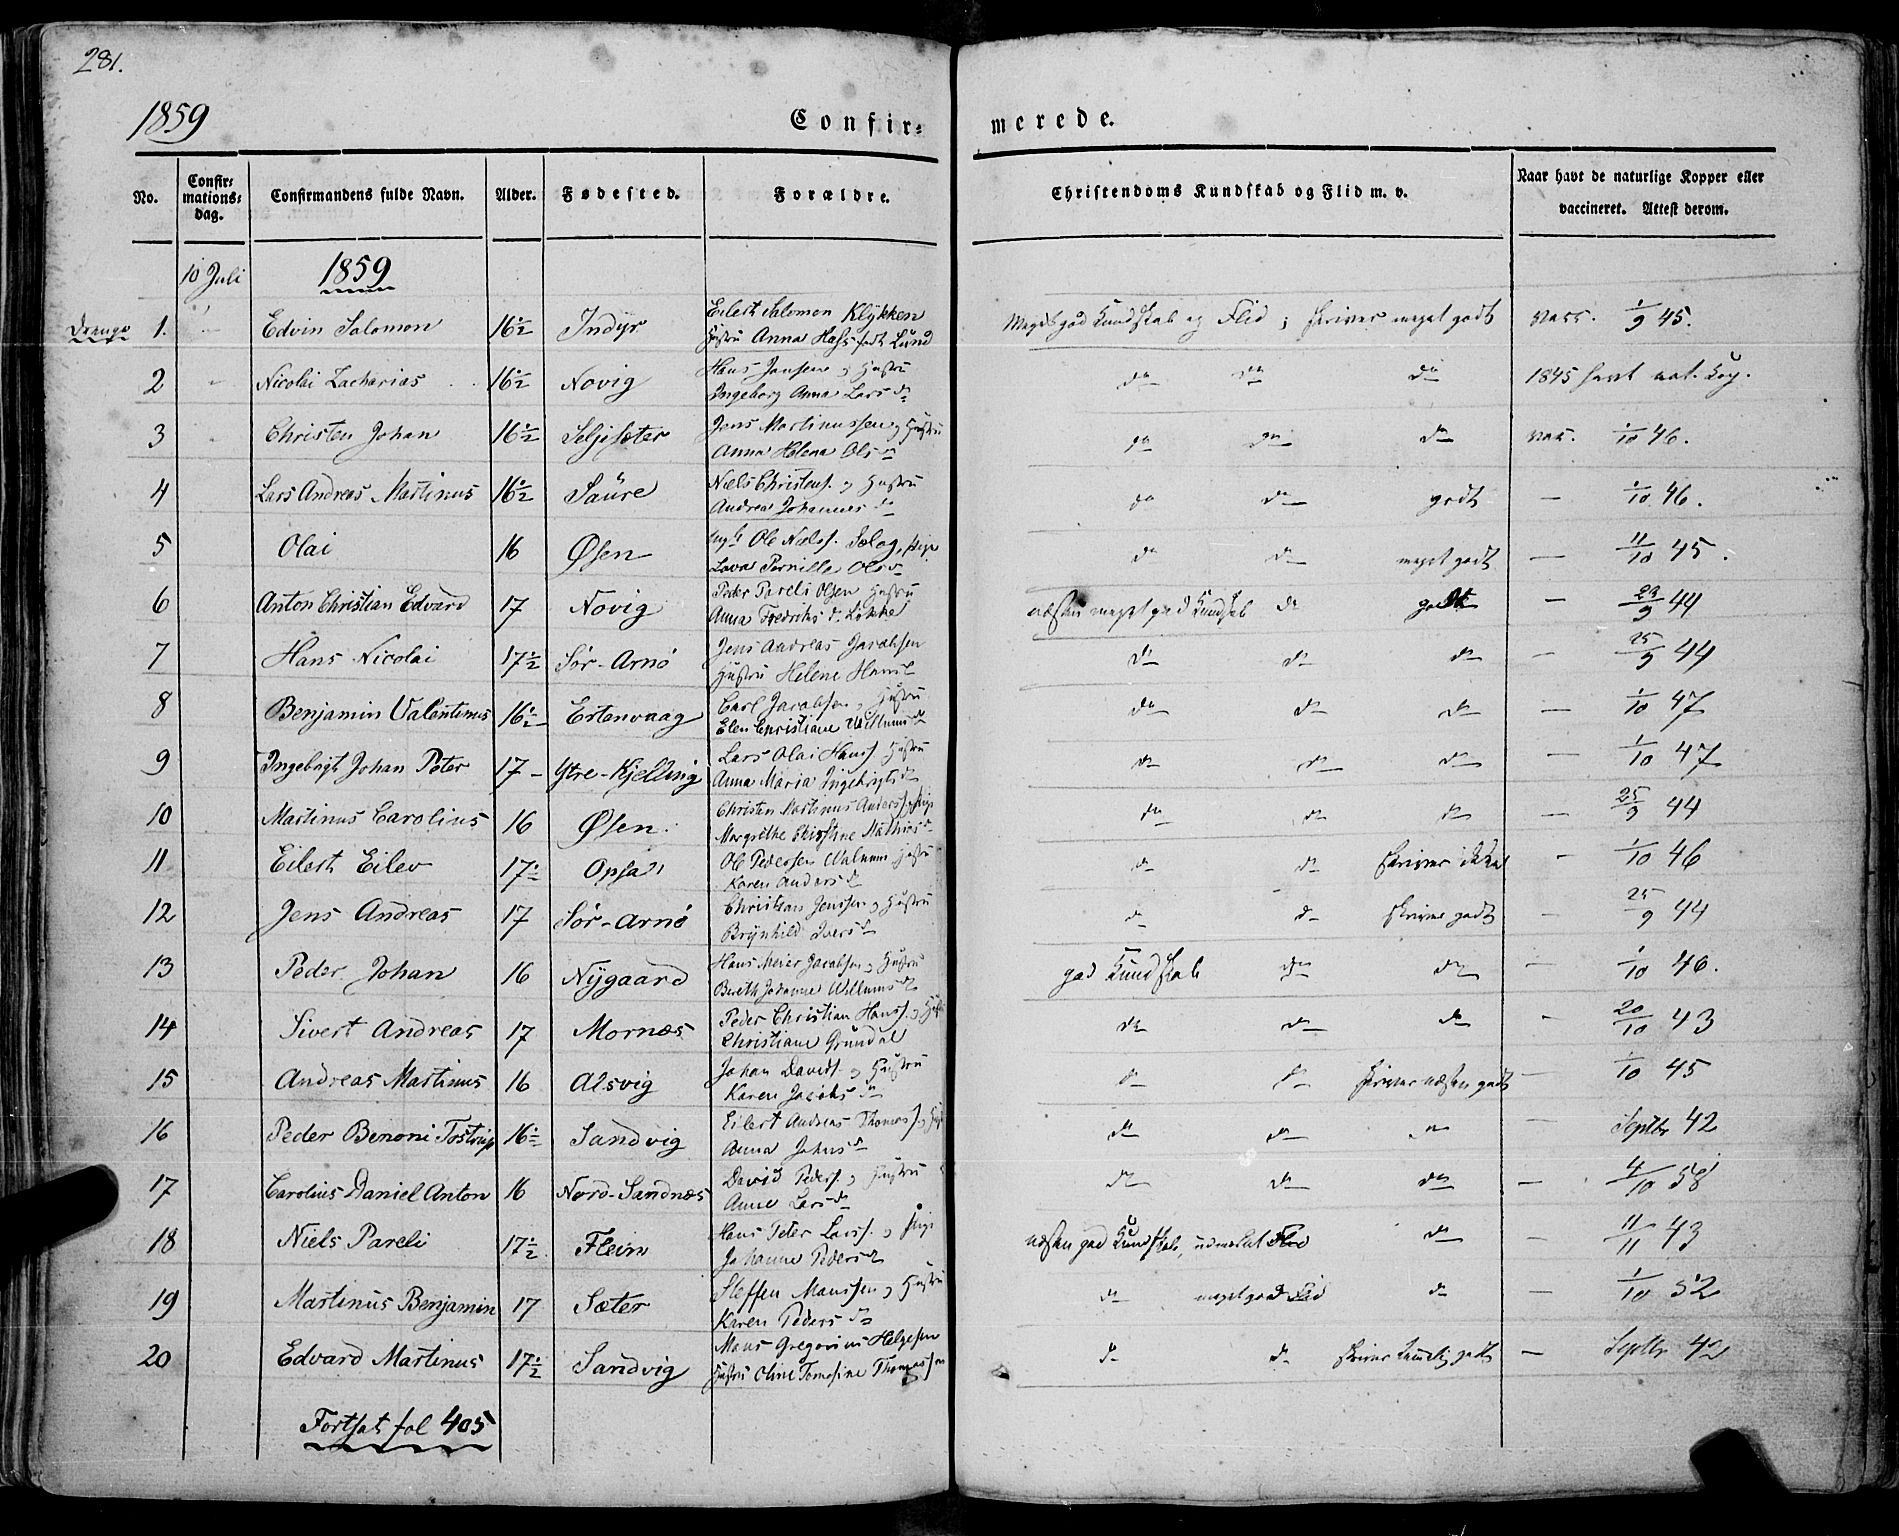 281.
1859
Confir=
merede.
No. Confir= mations= dag. Confirmandens fulde Navn. Alder. Fødested. Forældre. Christendoms Kundskab og Flid m. v. Naar havt de naturlige Kopper eller vaccineret. Attest derom.
10 Juli 1859
Drenge 1. Edvin Salomon 16½ Indyr Eilert Salomon Klykken Hustru Anna Hass født Lund Meget god Kundskab og Flid; skriver meget godt vacc. 1/9 45.
2 Nicolai Zacharias 16½ Novig Hans Jensen og Hustru Ingeborg Anna Lars d. do do do 1845 havt nat. Kop.
3 Christen Johan 16½ Seljesæter Jens Martinussen og Hustru Anna Helena Ols d. do do do vac. 1/10 46.
4 Lars Andreas Martinus 16½ Saure Niels Christens. og Hustru Andrea Johannes d. do do godt — 1/10 46.
5 Olai 16 Øsen Ungk. Ole Niels. Pige Lava Pernille Ols d. do do meget godt — 11/10 45.
6 Anton Christian Edvard 17 Novig Peder Pareli Olsen Hustru Anna Fredriks d. Løkke næsten meget god Kundskab do godt — 23/9 44
7 Hans Nicolai 17½ Sør-Arnø Jens Andreas Jacobsen Hustru Helene Hans d. do do do — 25/9 44
8 Benjamin Valentinus 16½ Ertenvaag Carl Jacobsen og Hustru Elen Christiane Willums d. do do do — 1/10 47
9 Ingebrigt Johan Peter 17 — Ytre-Kjelling Lars Olai Hans. Hustru Anna Maria Ingebrigts d. do do do — 1/10 47
10 Martinus Carolius 16 Øsen. Christen Martinus Anders. og Pige Margrethe Christine Mathias d. do do do — 25/9 44
11 Eilert Eilev 17½ Opsal Ole Pedersen Valnum Hustru Karen Anders d. do do skriver ikke — 1/10 46
12 Jens Andreas 17 Sør-Arnø Christian Jenssen og Hustru Brynhild Ivers d. do do skriver godt — 25/9 44
13 Peder Johan 16 Nygaard Hans Meier Jacobsen og Hustru Bereth Johanna Willums d. god Kundskab do do — 1/10 46.
14 Sivert Andreas 17 Mornæs Peder Christian Hans. og Hustru Christiane Grundal do do do — 20/10 43
15 Andreas Martinus 16 Alsvig Johan Davids. og Hustru Karen Jacobs d. do do skriver næsten godt — 1/10 45
16 Peder Benoni Tostrup 16½ Sandvig Eilert Andreas Thomas. og Hustru Anna Johns d. do do do Septbr 42
17 Carolius Daniel Anton 16 Nord-Sandnæs David Peders. og Hustru Anne Lars d. do do do — 4/10 58
18 Niels Pareli 17½ Flein Hans Peter Lars. og Pige Johanna Peders d. næsten god Kundskab, udmærket Flid do — 11/11 43
19 Martinus Benjamin 17 Sæter Steffen Manssen og Hustru Karen Peders d. do meget god Flid do — 1/10 52
20 Edvard Martinus 17½ Sandvig Mons Gregorius Helgesen Hustru Oline Tomasine Thomassen do do skriver temmelig godt — Septbr 42
Fortsat fol 405